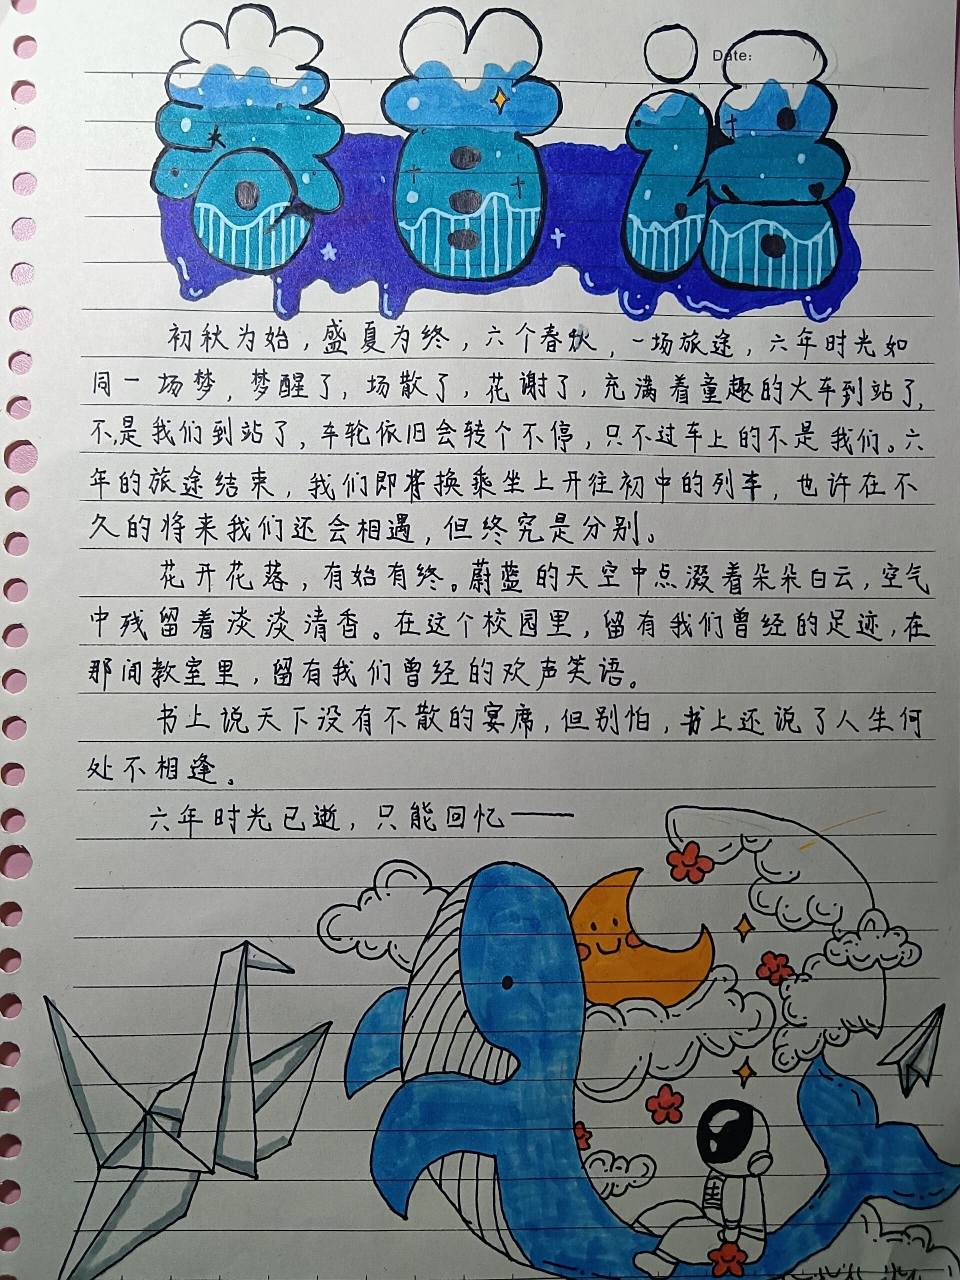 Date:
初秋为始，盛夏为终，六个春秋，一场旅途，六年时光如
同一场梦，梦醒了，场散了，花谢了，充满着童趣的火车到站了，
不，是我们到站了，车轮依旧会转个不停，只不过车上的不是我们。六
年的旅途结束，我们即将换乘坐上开往初中的列车，也许在不
久的将来我们还会相遇，但终究是分别。
花开花落，有始有终。蔚蓝的天空中点缀着朵朵白云，空气
中残留着淡淡清香。在这个校园里，留有我们曾经的足迹，在
那间教室里，留有我们曾经的欢声笑语。
书上说天下没有不散的宴席，但别怕，书上还说了人生何
处不相逢。
六年时光已逝，只能回忆——